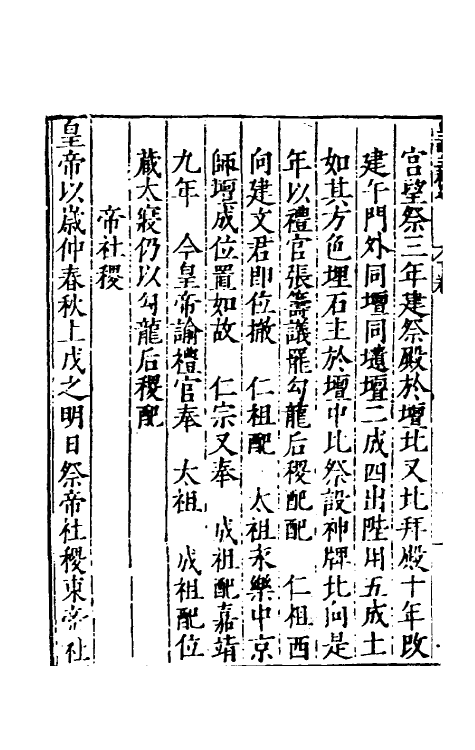 宫望祭三年建祭殿於壇北又北拜殿十年改
建午門外同壇同壝壇二成四出陛用五成土
如其方色埋石主於壇中比祭設神牌北向是
年以禮官張籌議罷勾龍后稷配配　仁祖西
向建文君即位撤　仁祖配　太祖永樂中京
師壇成位置如故　仁宗又奉　成祖配嘉靖
九年　今皇帝諭禮官奉　太祖　成祖配位
藏太寢仍以勾龍后稷配
帝社稷
皇帝以歲仲春秋上戊之明日祭帝社稷東帝社